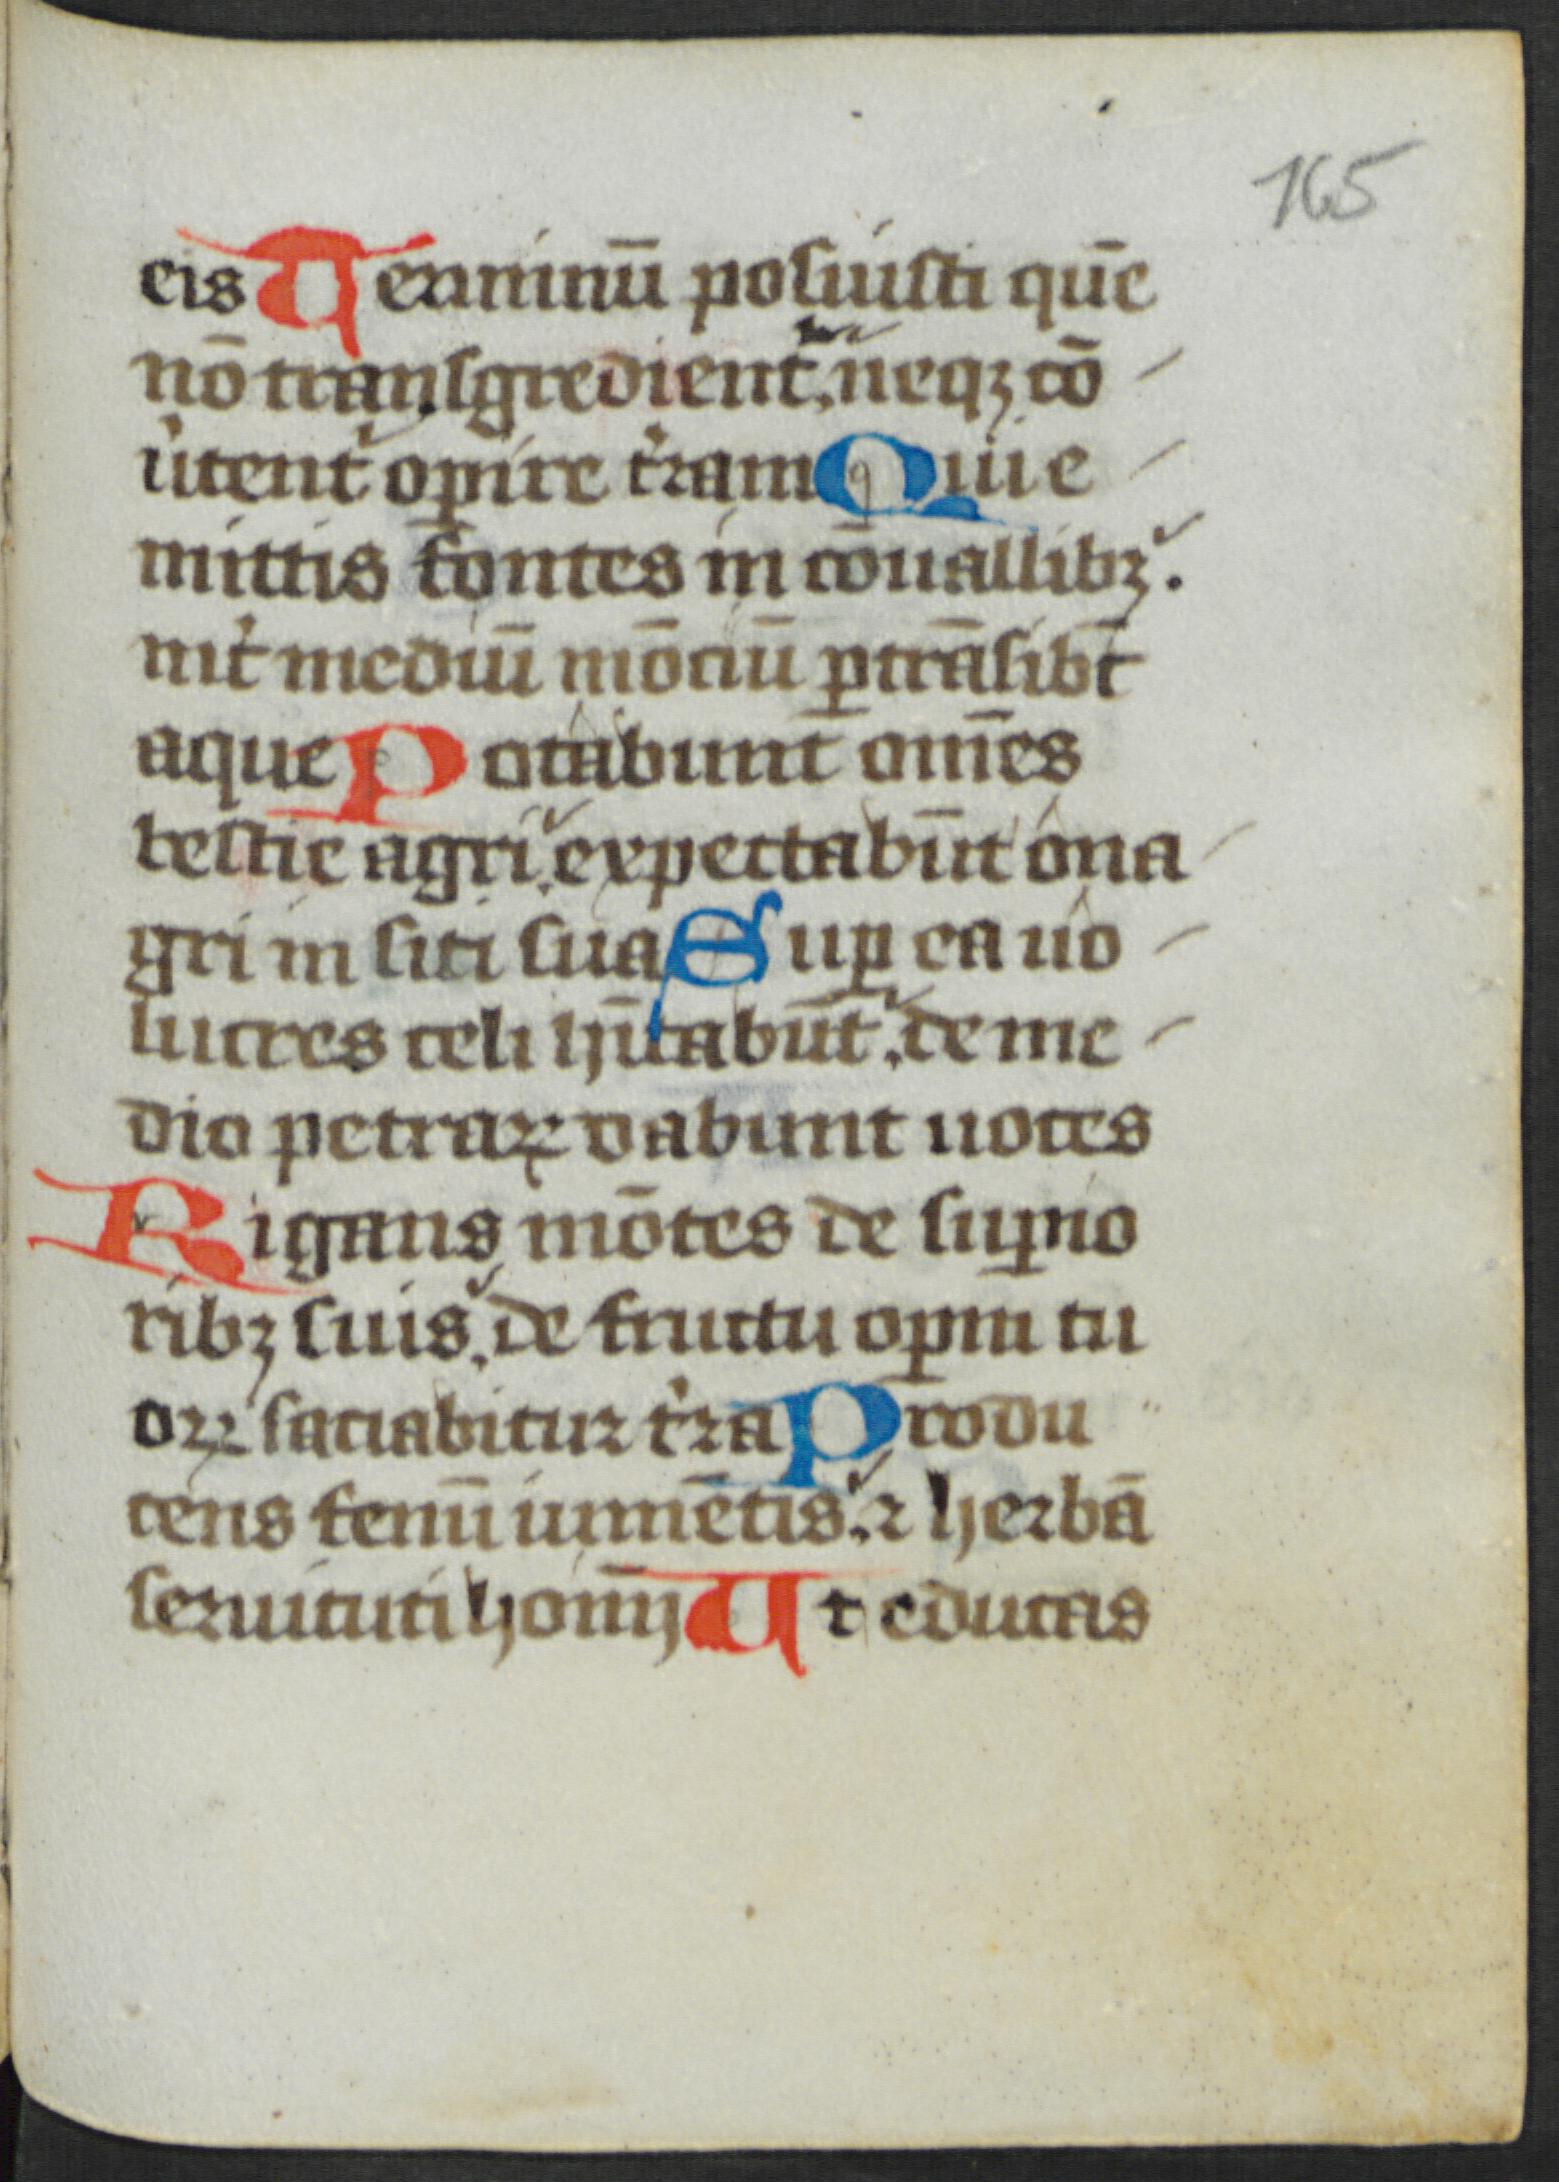 165
eis Terminū posuisti quē
nō transgredient᷑. neqꝫ cō
u᷑tent᷑ oꝑire t᷑ram Qui e
mittis fontes in cōuallibꝫ.
int᷑ mediū mōciū ꝑtrāsibt̄
aque Potabunt om̄es
bestie agri. expectabūt ona
gri in siti sua Suꝑ ea uo
lucres celi hītabūt. de me
dio petraꝝ dabunt uoces
Rigans mōtes de suꝑio
ribꝫ suis. de fructu oꝑm tu
oꝝ saciabitur t᷑ra Produ
cens fenū iumētis. ⁊ herbā
seruituti homī Ut educas